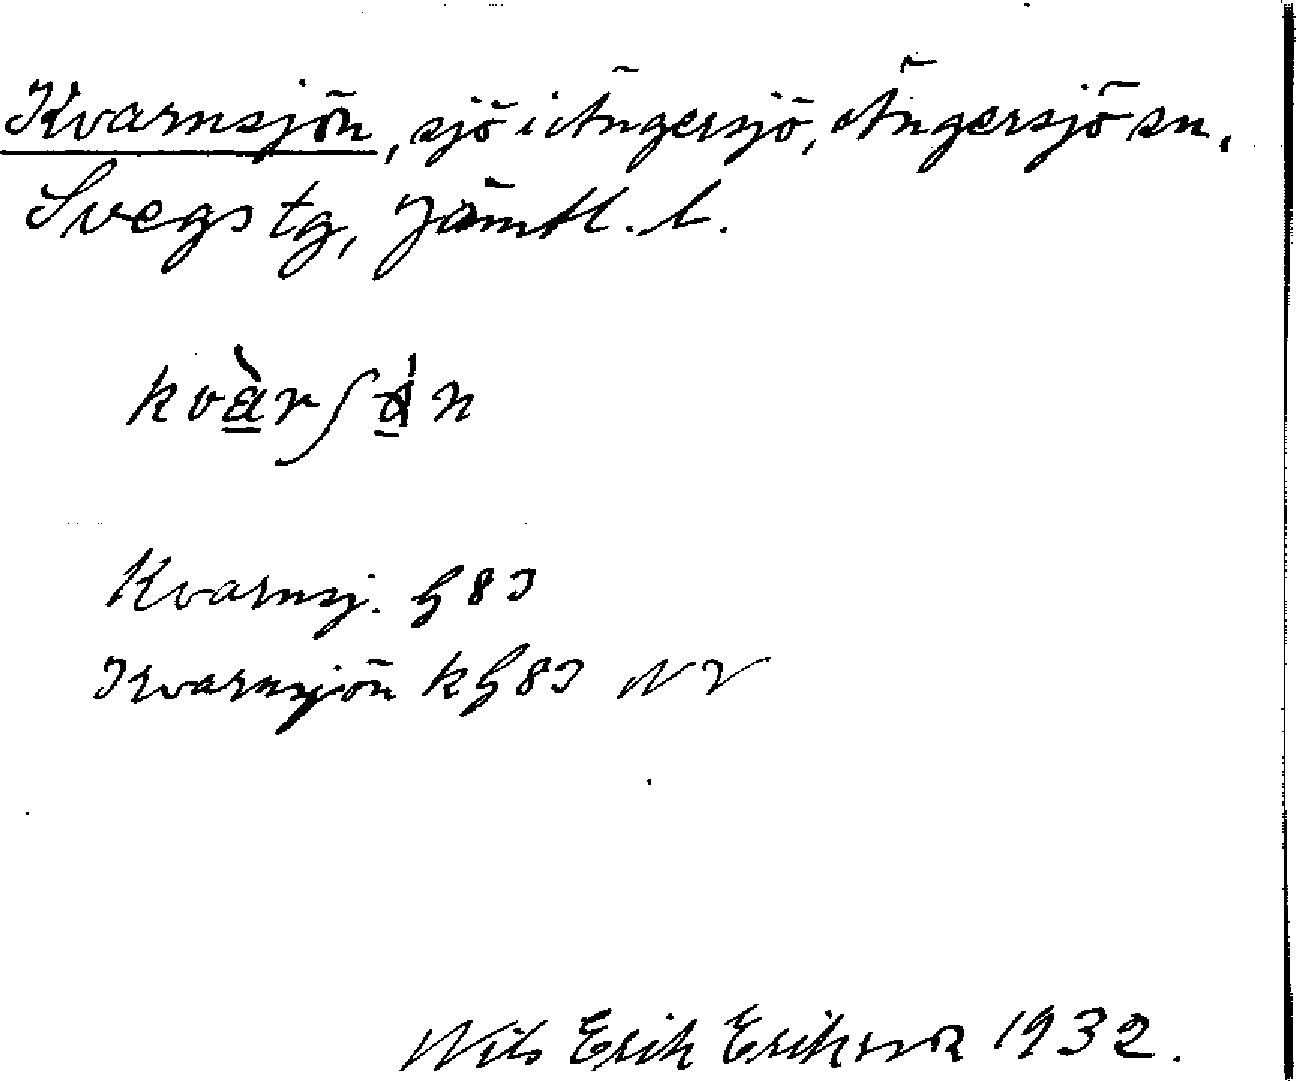 Kvarnsjön, sjö i Ängersjö, Ängersjö sn,
Svegs tg, Jämtl. l.
Kvarnsj. G 83
Kvarnsjön kG 83 NV
Nils Erik Eriksson 1932.